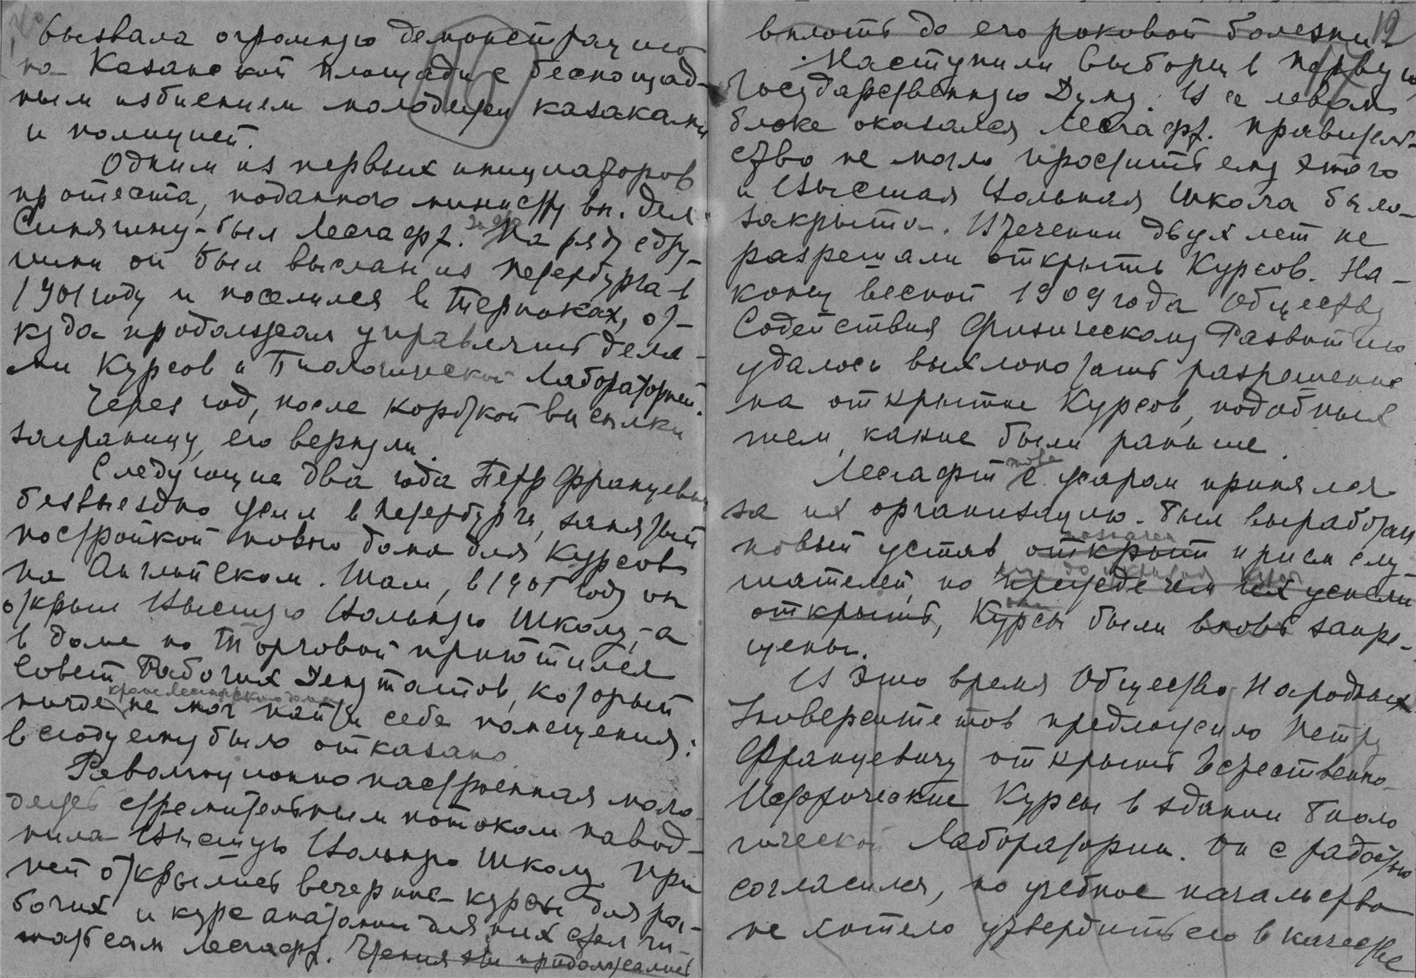 вызвала огромную демонстрацию
на Казанской площади с беспощад-
ным избиением молодежи казаками
и полицией.
Одним из первых инициаторов
протеста, поданного министру вн. дел
Сипягину - был Лесгафт. На ряду с дру-
гими он был выслан из Петербурга в
1901 году и поселился в Териоках, от-
куда продолжал управлять дела-
ми Курсов и Биологической Лабораторией.
Через год, после короткой высылки
заграницу, его вернули.
Следующие два года Петр Францевич
безвыездно жил в Петербурге, занятый
постройкой нового дома для Курсов
на Английском. Там, в 1905 году он
открыл Высшую Вольную Школу, а
в доме по Торговой приютился
Совет Рабочих Депутатов, который
кроме Лесгафтского дома
нигде не мог найти себе помещения:
всюду ему было отказано.
Революционно настроенная моло-
дежь стремительным потоком навод-
нила Высшую Вольную Школу. При
ней открылись вечерние курсы для ра-
бочих и курс анатомии для них стал чи-
тать сам Лесгафт. Чтения эти продолжались
12
вплоть до его роковой болезни.
Наступили выборы в первую
Государственную Думу. В ее левом
блоке оказался Лесгафт. Правитель-
ство не могло простить ему этого
и Высшая Вольная Школа была
закрыта. В течении двух лет не
разрешали открыть Курсов. На-
конец весной 1909 года Обществу
Содействия Физическому Развитию
удалось выхлопотать разрешение
на открытие Курсов, подобных
тем, какие были раньше.
Лесгафт с жаром принялся
за их организацию. Был выработан
новый устав открыт прием слу-
шателей, но прежде чем их успели
открыть, Курсы были вновь запре-
щены.
В это время Общество Народных
Университетов предложило Петру
Францевичу открыть Естественно-
Исторические Курсы в здании Биоло
гической Лаборатории. Он с радостью
согласился, но учебное начальство
не хотело утвердить его в качестве